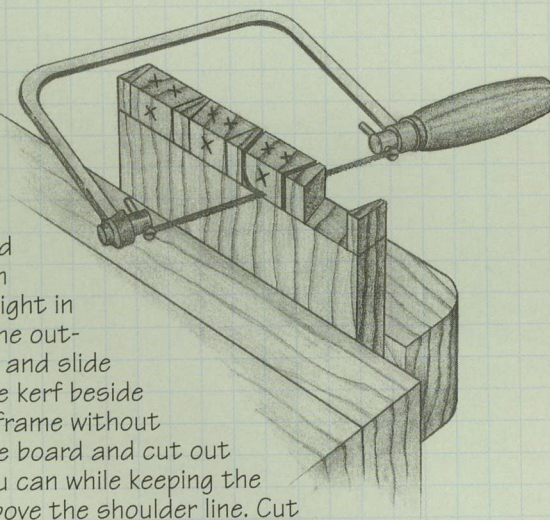 d
n
ight in
ne out-
and slide
e kerf beside
frame without
e board and cut out
u can while keeping the
bove the shoulder line. Cut